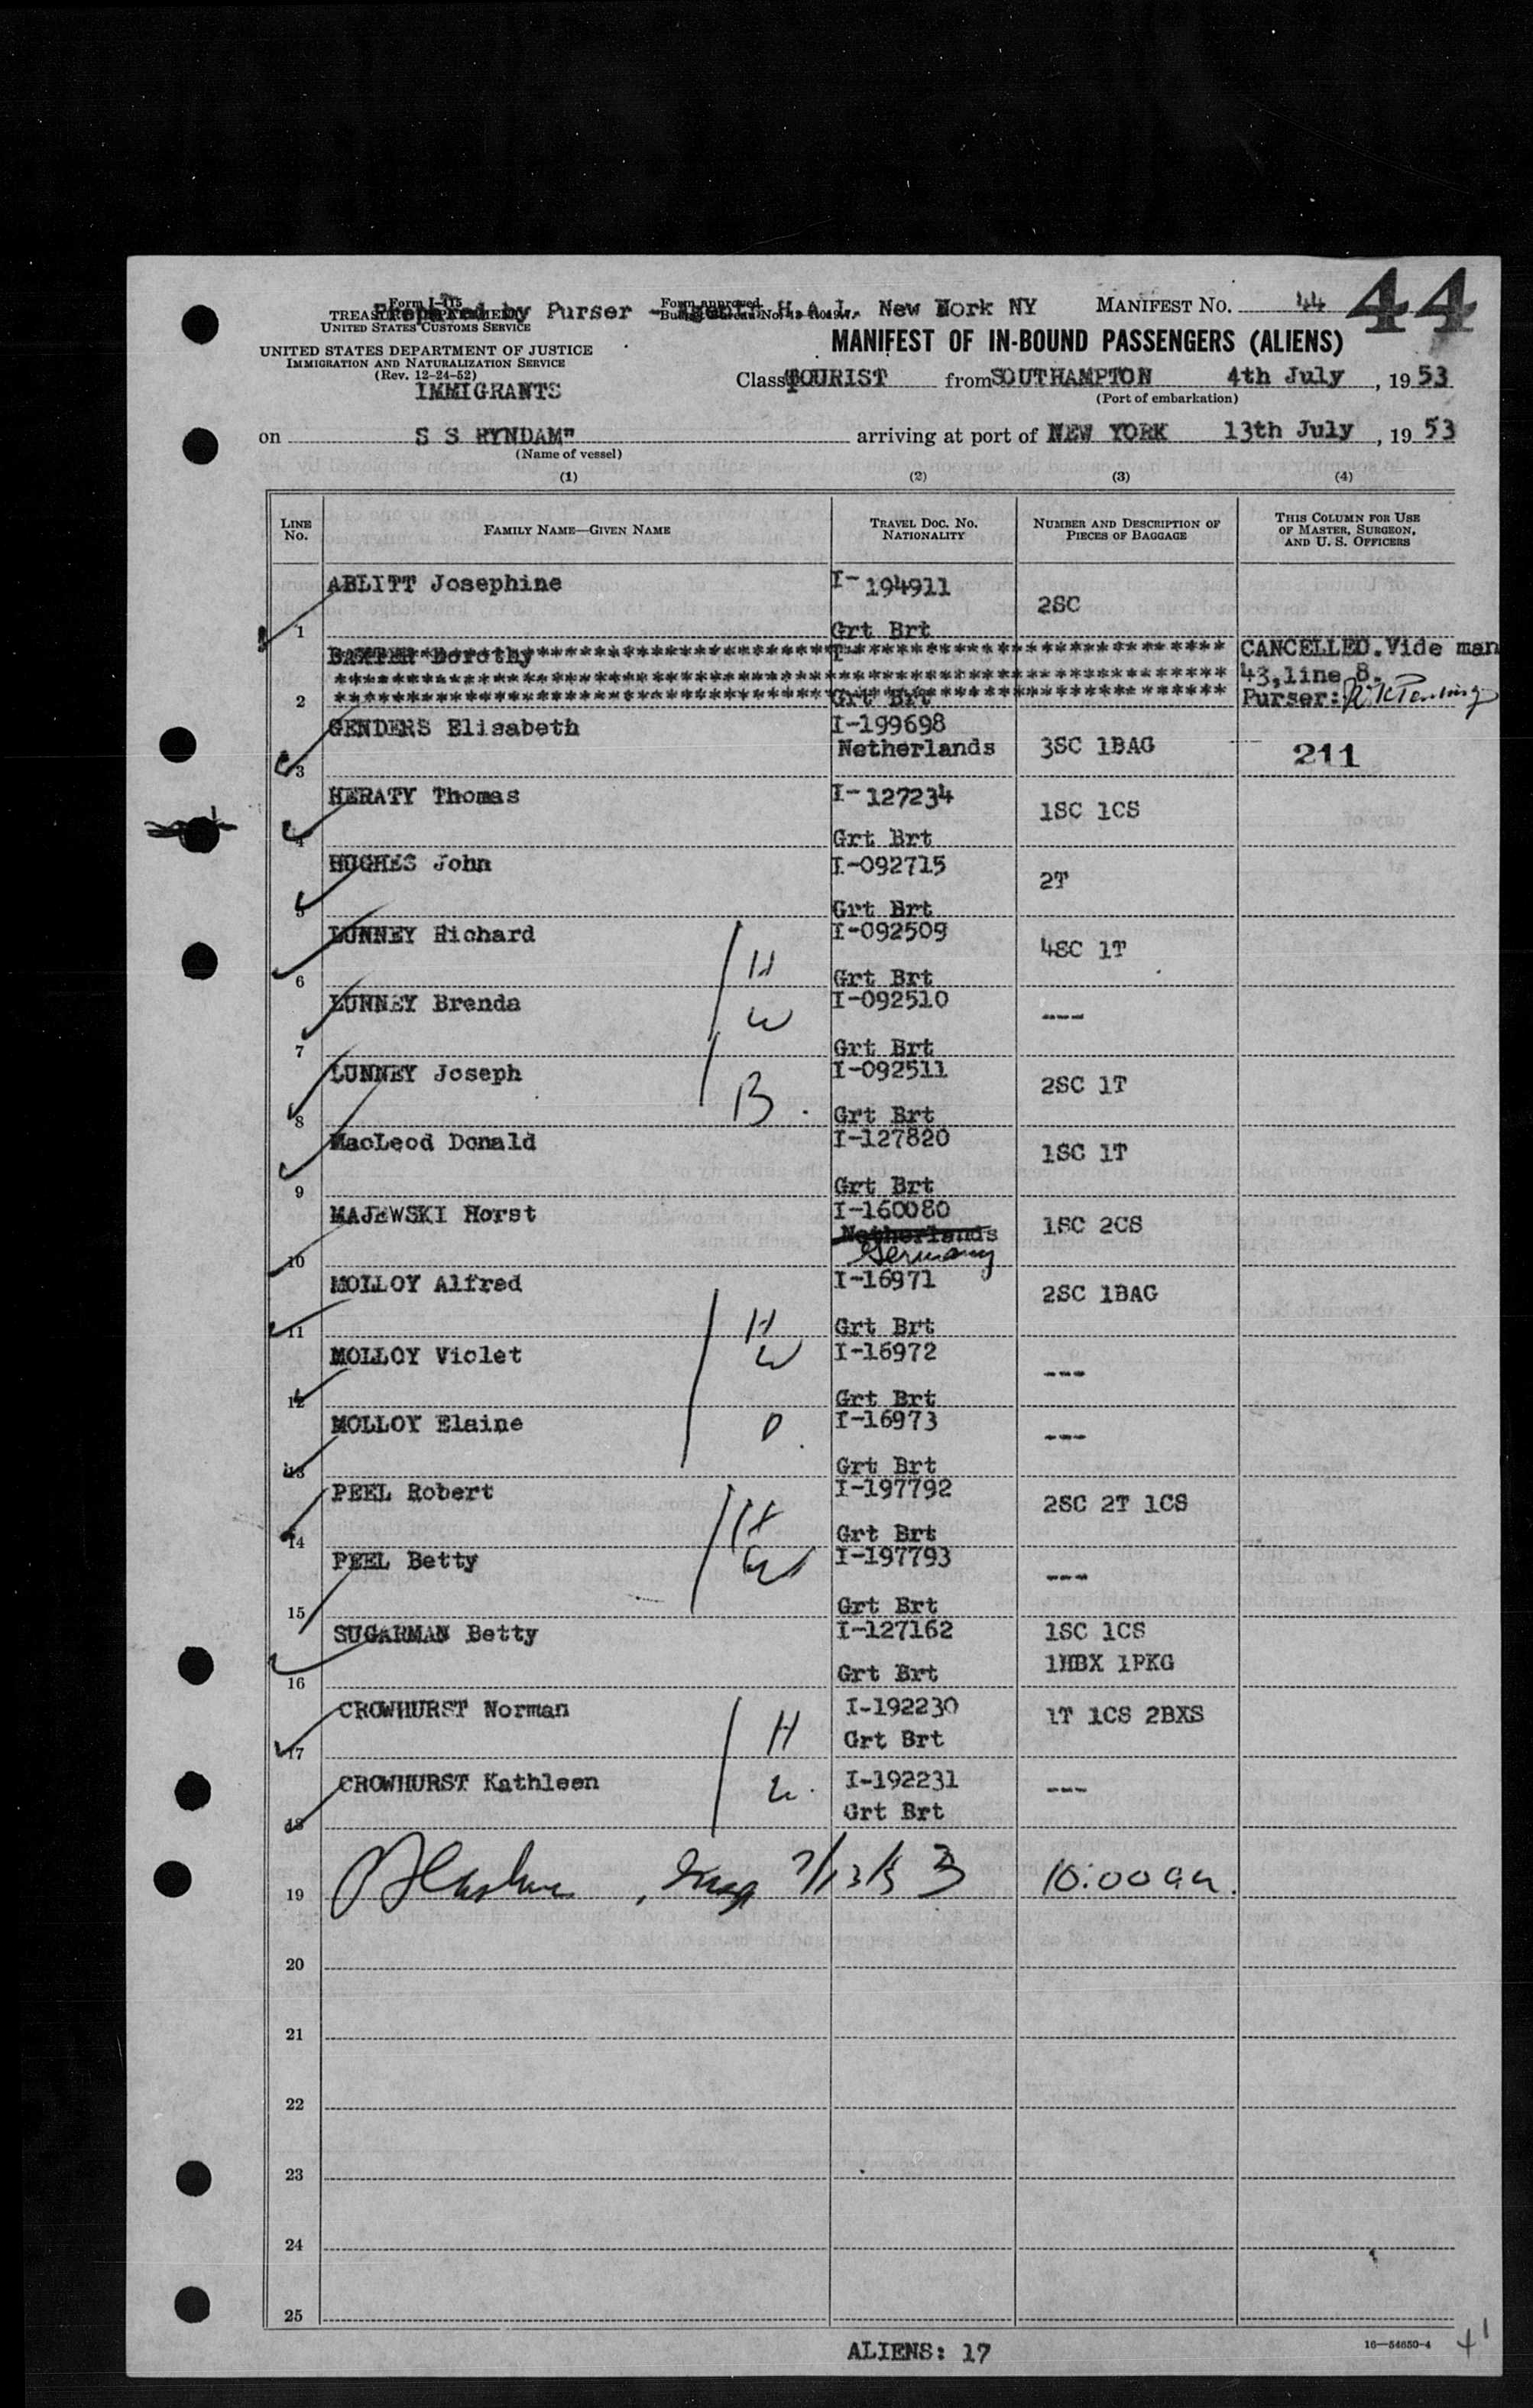 Form I-415
TREASURY DEPARTMENT
UNITED STATES CUSTOMS SERVICE
Prepared by Purser - Agent: H.A.L. New York NY
Form approved
MANIFEST NO. 44
44
UNITED STATES DEPARTMENT OF JUSTICE
IMMIGRATION AND NATURALIZATION SERVICE
(Rev. 12-24-52)
IMMIGRANTS
MANIFEST OF IN-BOUND PASSENGERS (ALIENS)
Class TOURIST from SOUTHAMPTON 4th July, 1953
(Port of embarkation)
on S S RYNDAM" arriving at port of NEW YORK 13th July, 1953
(Name of vessel)
(1) (2) (3) (4)
LINE NO.
FAMILY NAME—GIVEN NAME
TRAVEL DOC. NO. NATIONALITY
NUMBER AND DESCRIPTION OF PIECES OF BAGGAGE
THIS COLUMN FOR USE OF MASTER, SURGEON, AND U. S. OFFICERS
1 ABLITT Josephine I-194911 Grt Brt 2SC
2 BAXTER Dorothy I- Grt Brt CANCELLED. Vide man 43, line 8. Purser:
3 GENDERS Elisabeth I-199698 Netherlands 3SC 1BAG 211
4 HERATY Thomas I-127234 Grt Brt 1SC 1CS
5 HUGHES John I-092715 Grt Brt 2T
6 LUNNEY Richard H I-092509 Grt Brt 4SC 1T
7 LUNNEY Brenda W I-092510 Grt Brt ---
8 LUNNEY Joseph B. I-092511 Grt Brt 2SC 1T
9 MacLeod Donald I-127820 Grt Brt 1SC 1T
10 MAJEWSKI Horst I-160080 Netherlands Germany 1SC 2CS
11 MOLLOY Alfred H I-16971 Grt Brt 2SC 1BAG
12 MOLLOY Violet W I-16972 Grt Brt ---
13 MOLLOY Elaine D. I-16973 Grt Brt ---
14 PEEL Robert H I-197792 Grt Brt 2SC 2T 1CS
15 PEEL Betty W I-197793 Grt Brt ---
16 SUGARMAN Betty I-127162 Grt Brt 1SC 1CS 1HBX 1PKG
17 CROWHURST Norman H I-192230 Grt Brt 1T 1CS 2BXS
18 CROWHURST Kathleen W. I-192231 Grt Brt ---
19 7/13/53 10:00 am.
20
21
22
23
24
25
ALIENS: 17
16—54650-4
41